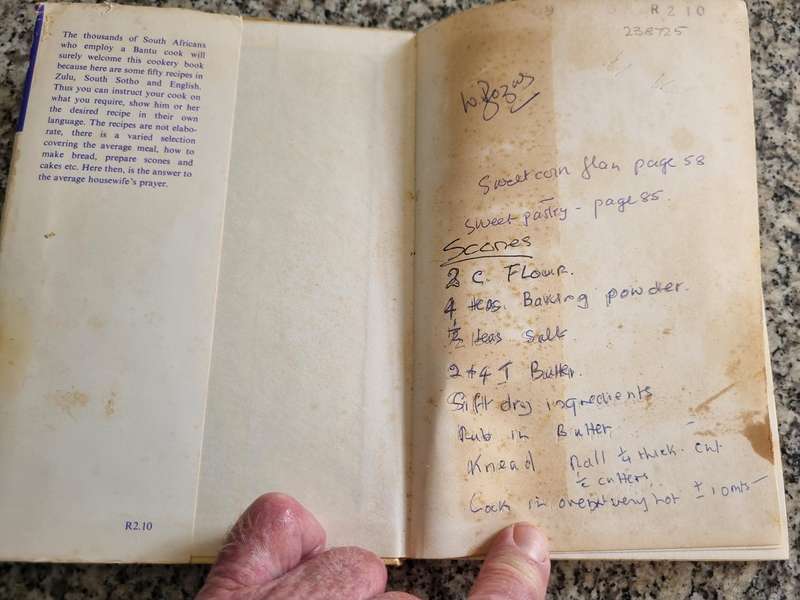 The thousands of South Africans
who employ a Bantu cook will
surely welcome this cookery book
because here are some fifty recipes in
Zulu, South Sotho and English.
Thus you can instruct your cook on
what you require, show him or her
the desired recipe in their own
language. The recipes are not elabo-
rate, there is a varied selection
covering the average meal, how to
make bread, prepare scones and
cakes etc. Here then, is the answer to
the average housewife's prayer.
R2.10
R2 10
238725
Sweetcorn flan page 58
Sweet pastry - page 85.
Scones
2 C. Flour.
4 teas. Baking powder.
½ teas Salt.
2 + 4 T Butter.
Sift dry ingredients
Rub in Butter
Knead Roll ¼ thick. cut
cutters.
Cook in oven very hot ± 10 mts